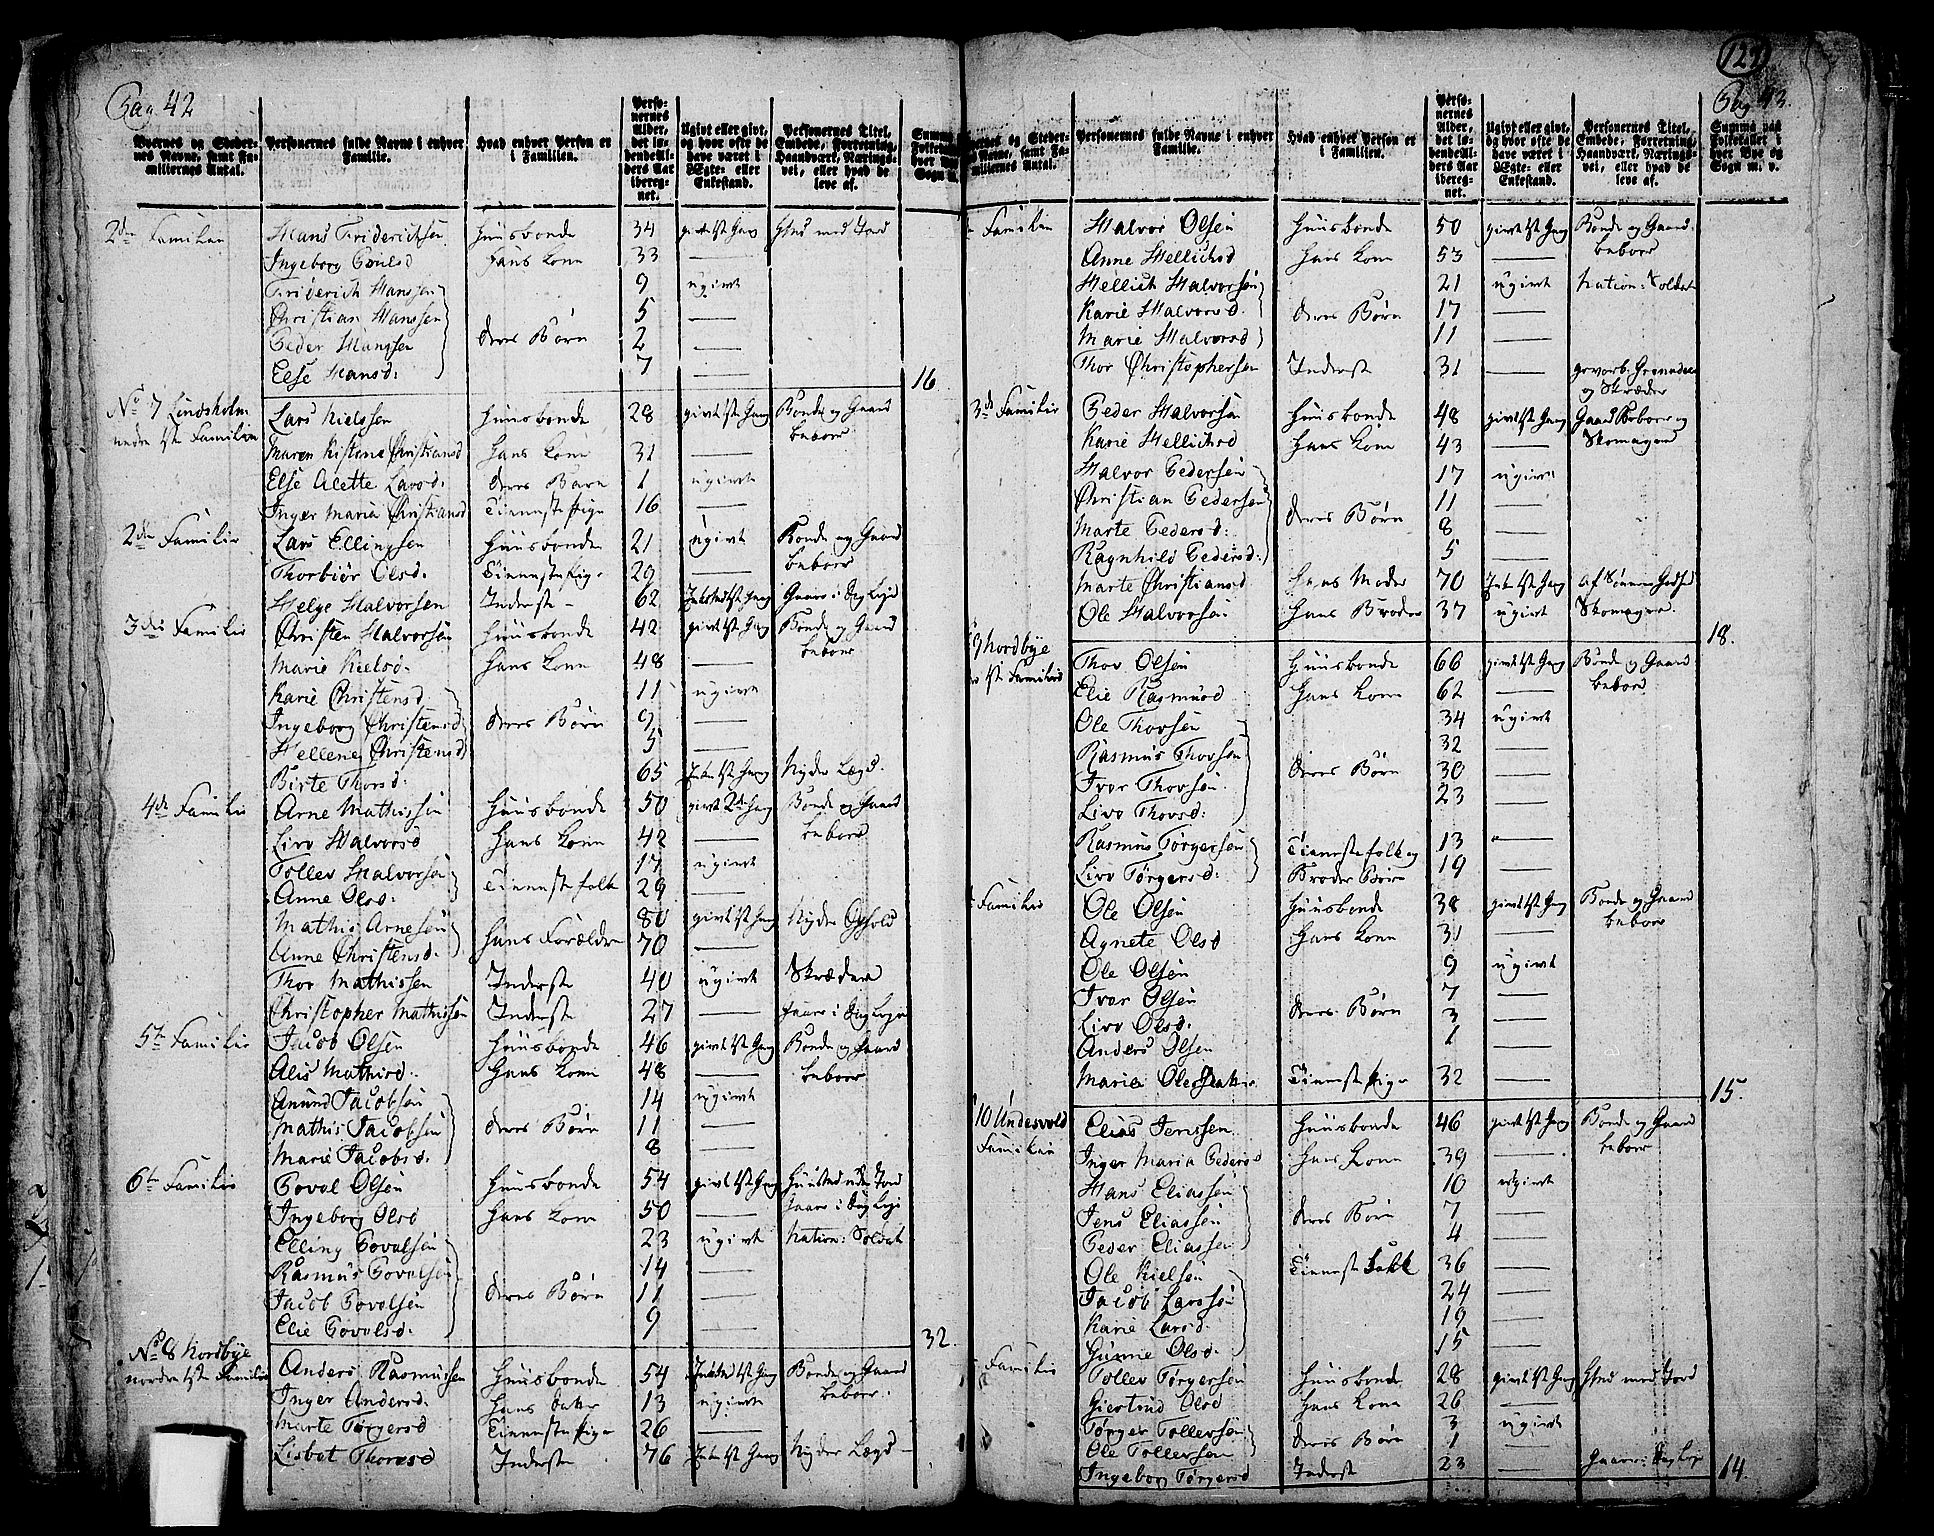 Pag. 42
Byernes og Stedernes Navne, samt Familiernes Antal. | Personernes fulde Navne i enhver Familie. | Hvad enhver Person er i Familien. | Personernes Alder, det løbende Alders Aar iberegnet. | Ugivt eller givt, og hvor ofte de have været i Ægte- eller Enkestand. | Personernes Titel, Embede, Forretning, Haandværk, Næringsvei, eller hvad de leve af.
2den Familie | Hans Friderichsen | Huusbonde | 34 | givt 1st Gang | Huusmd med Jord
Ingeborg Poulsd | Hans Kone | 33 | —
Friderich Hanssen | 9 | ugivt
Christian Hanssen | 5 | —
Peder Hanssen | deres Børn | 2 | —
Else Hansd: | 7 | — | 16
No 7 Lindsholm nedre 1ste Familie | Lars Nielssen | Huusbonde | 28 | givt 1st Gang | Bonde og Gaard beboer
Maren Kistene Christiansd | Hans Kone | 31 | —
Else Alette Larsd. | deres Barn | 1 | ugivt
Inger Maria Christiansd | Tieneste pige | 16 | —
2den Familie | Lars Ellingsen | Huusbonde | 21 | ugivt | Bonde og Gaard beboer
Thorbiør Olsd. | Tieneste pige | 29 | —
Helge Halvorsen | Inderste | 62 | 1st Gang | Gaaer i Dag Leye
3die Familie | Christen Halvorsen | Huusbonde | 42 | givt 1st Gang | Bonde og Gaard beboer
Marie Nielsd. | Hans Kone | 48 | —
Karie Christensd. | 11 | ugivt
Ingeborg Christensd | deres Børn | 9 | —
Hellene Christensd | 5 | —
Birte Thorsd. | 65 | 1st Gang | Nyder Lægd.
4de Familie | Arne Mathissen | Huusbonde | 50 | givt 2de Gang | Bonde og Gaard beboer
Livv Halvorsd | Hans Kone | 42 | —
Tollev Halvorsen | 17 | ugivt
Anne Olsd. | Tieneste folk | 29 | —
Mathis Arnesen | 80 | givt 1st Gang | Nyder Ophold
Anne Christensd. | Hans Forældre | 70 | —
Thor Mathissen | Inderste | 40 | ugivt | Skrædere
Christopher Mathissen | Inderste | 27 | — | Gaaer i Dag Leye
5te Familie | Jacob Olsen | Huusbonde | 46 | givt 1st Gang | Bonde og Gaard beboer
Alis Mathisd. | Hans Kone | 48 | —
Amund Jacobsen | 14 | ugivt
Mathis Jacobsen | deres Børn | 11 | —
Marie Jacobsd. | 8 | —
6te Familie | Povel Olsen | Huusbonde | 54 | givt 1st Gang | Huusmd uden Jord
Ingeborg Olsd | Hans Kone | 50 | — | Gaaer i Dag Leye
Elling Povelsen | 23 | ugivt | Nation: Soldat
Rasmus Povelsen | 14 | —
Jacob Povelsen | deres Børn | 11 | —
Elie Povelsd. | 9 | — | 32.
No 8 Nordbye nordre 1ste Familie | Anders Rasmussen | Huusbonde | 54 | 1st Gang | Bonde og Gaard beboer.
Inger Andersd. | Hans datter | 13 | ugivt
Marte Tørgersd | Tieneste pige | 26 | —
Lisbet Thoresd | Inderste | 76 | 1st Gang | Nyder Lægd
Pag. 43.
Personernes fulde Navne i enhver Familie. | Hvad enhver Person er i Familien. | Personernes Alder, det løbende Alders Aar iberegnet. | Ugivt eller givt, og hvor ofte de have været i Ægte- eller Enkestand. | Personernes Titel, Embede, Forretning, Haandværk, Næringsvei, eller hvad de leve af. | Summa paa Folketallet i hver Bye og Sogn m. v.
Familie | Halvor Olsen | Huusbonde | 50 | givt 1st Gang | Bonde og Gaard beboer
Anne Hellichsd | Hans Kone | 53 | —
Hellich Halvorsen | 21 | ugivt | Nation: Soldat
Karie Halvorsd. | deres Børn | 17 | —
Marie Halvorsd | 11 | —
Thor Christophersen | Inderste | 31 | — | gevorb: Grenadeer og Skræder
3de Familie | Peder Halvorsen | Huusbonde | 48 | givt 1st Gang | Gaard Beboer og Skomager
Karie Hellichsd | Hans Kone | 43 | —
Halvor Pedersen | 17 | ugivt
Christian Pedersen | deres Børn | 11 | —
Marte Pedersd: | 8 | —
Ragnhild Pedersd. | 5 | —
Marte Christiansd | Hans Moder | 70 | 1st Gang | Af Sønnens Godhed
Ole Halvorsen | Hans Broder | 37 | ugivt | Skomager. | 18.
9 Nordbye 1ste Familie | Thor Olsen | Huusbonde | 66 | givt 1st Gang | Bonde og Gaard beboer
Elie Rasmusd | Hans Kone | 62 | —
Ole Thorsen | 34 | ugivt
Rasmus Thorsen | 32 | —
Ivar Thorsen | deres Børn | 30 | —
Livv Thorsd: | 23 | —
Rasmus Tørgersen | Tieneste folk og | 13 | —
Livv Tørgersd: | Broder Børn | 19 | —
Familie | Ole Olsen | Huusbonde | 38 | givt 1st Gang | Bonde og Gaard beboer
Agnete Olsd | Hans Kone | 31 | —
Ole Olsen | 9 | ugivt
Ivar Olsen | 7 | —
Livv Olsd. | deres Børn | 3 | —
Anders Olsen | 1 | —
Maria Olesdatter | Tieneste pige | 32 | — | 15.
10 Undesvold Familie | Elias Jenssen | Huusbonde | 46 | givt 1st Gang | Bonde og Gaard beboer
Inger Maria Pedersd | Hans Kone | 39 | —
Hans Eliassen | 10 | ugivt
Jens Eliassen | deres Børn | 7 | —
Peder Eliassen | 4 | —
Ole Nielsen | Tieneste Folk | 36 | —
Jacob Larssen | 24 | —
Karie Larsd. | 19 | —
Gunne Olsd. | 15 | —
Familie | Tollev Tørgersen | Huusbonde | 28 | givt 1st Gang | Huusmd med Jord
Giertrud Olsd | Hans Kone | 26 | —
Tørger Tollevsen | deres Børn | 3 | ugivt
Ole Tollevsen | 1 | —
Ingeborg Tørgersd | Inderst | 23 | — | Gaaer i Dag Leye | 14.